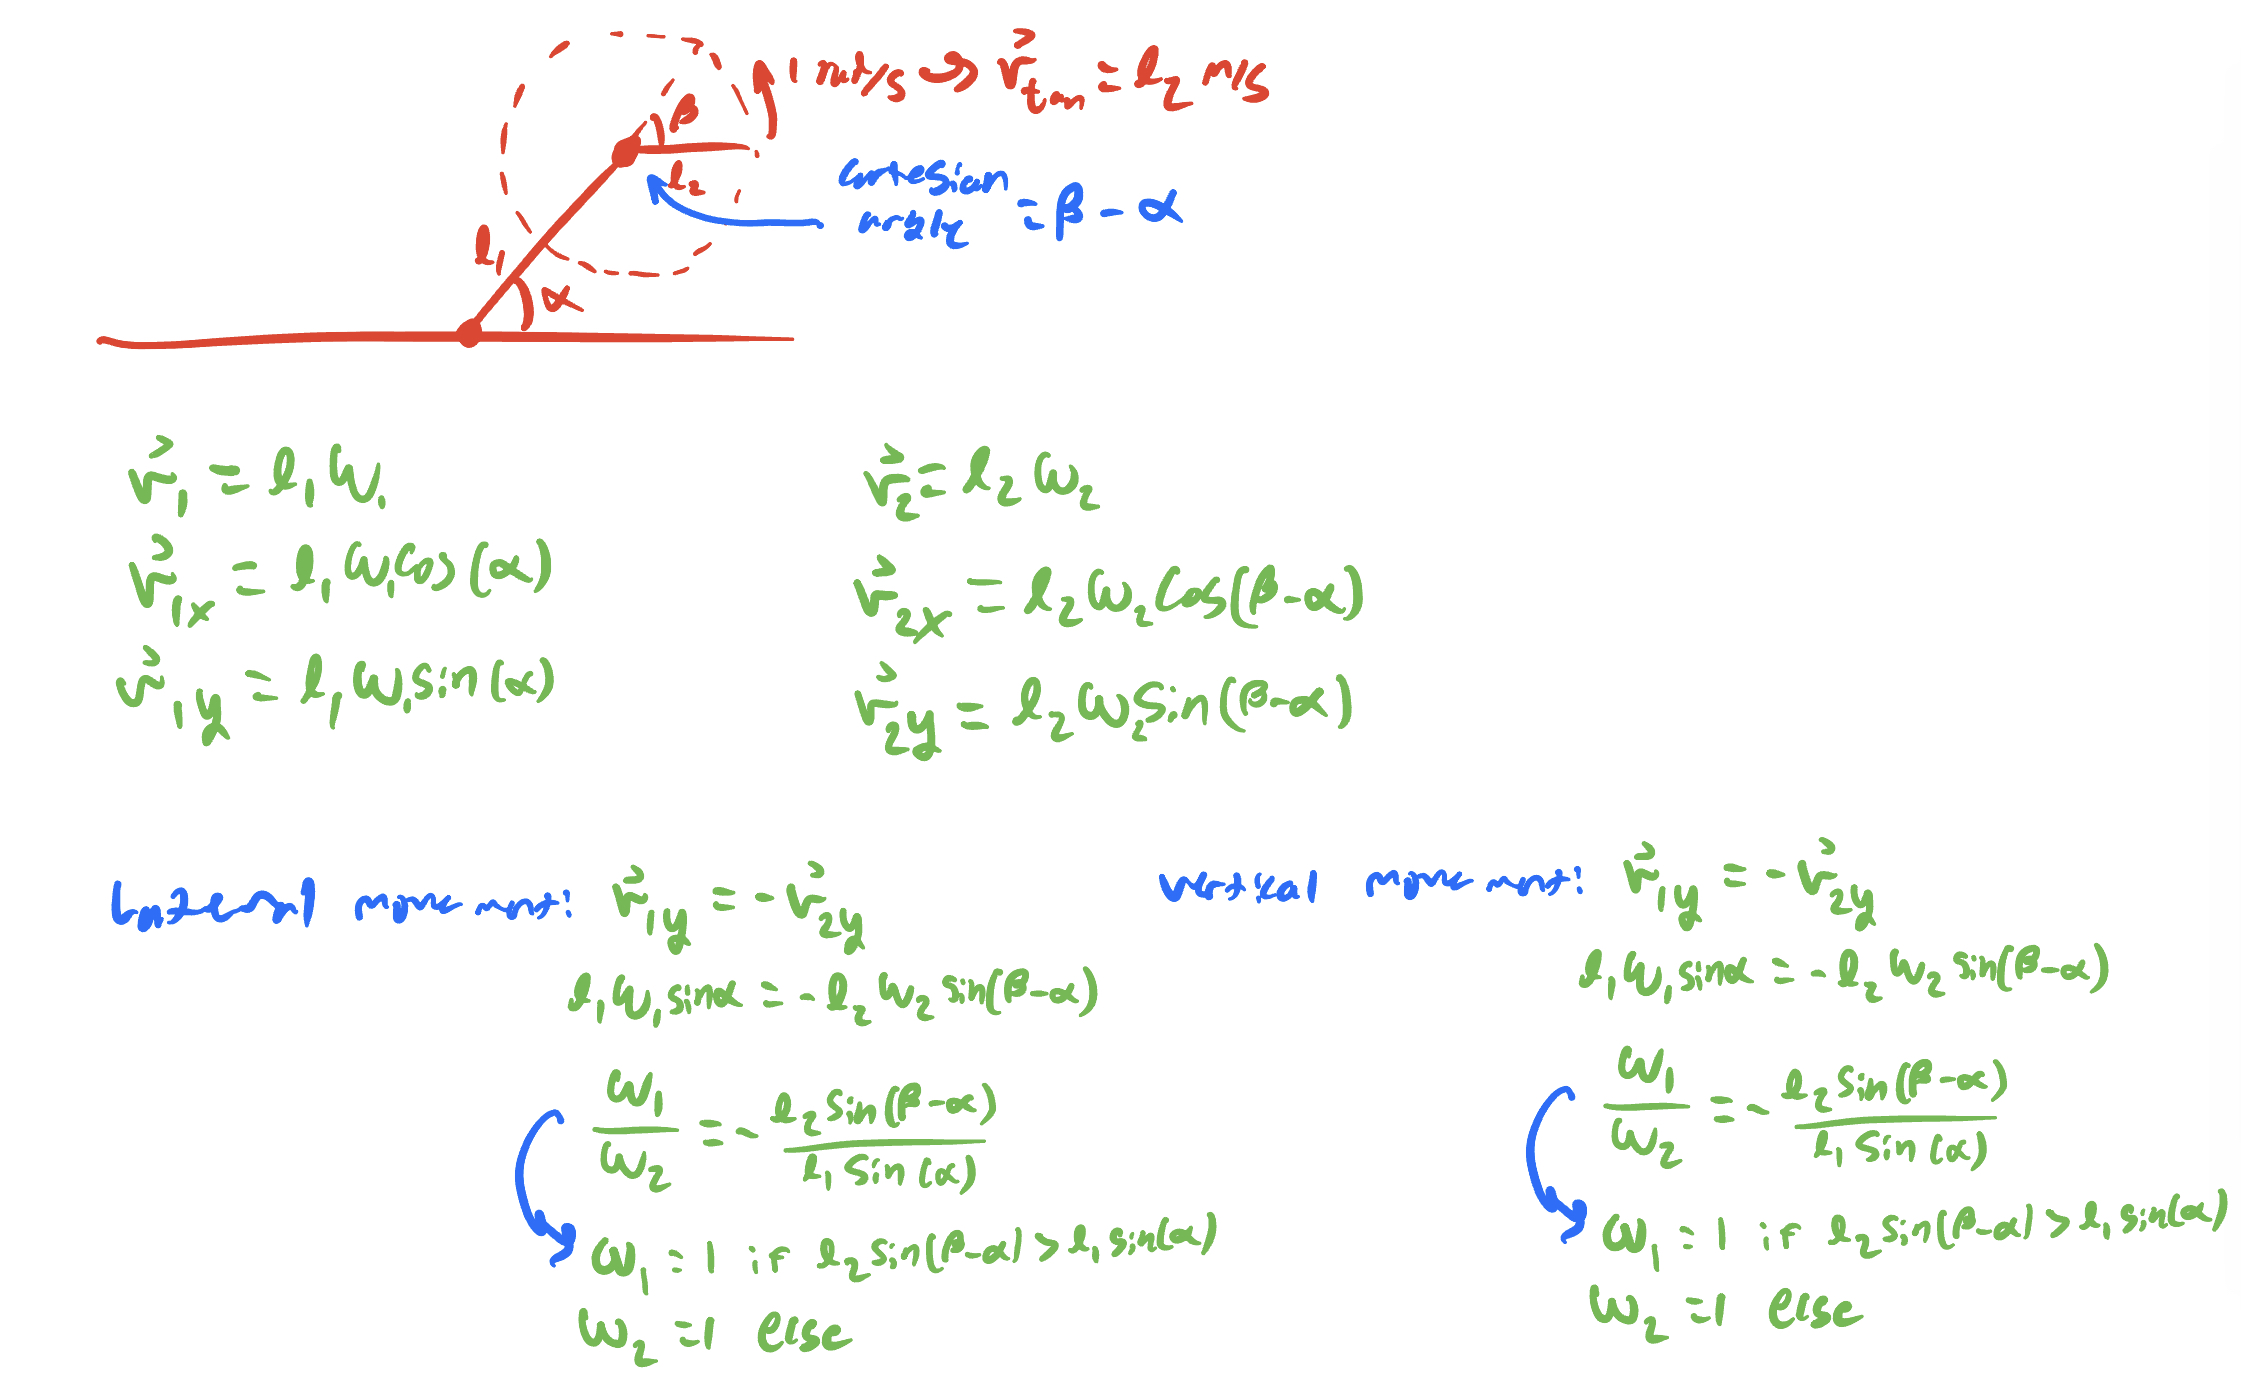 1 rad/s → v⃗tan = l₂ m/s
β
l₂
cartesian angle = β - α
l₁
α
v⃗₁ = l₁ω₁
v⃗₁ₓ = l₁ω₁cos(α)
v⃗₁y = l₁ω₁sin(α)
v⃗₂ = l₂ω₂
v⃗₂ₓ = l₂ω₂cos(β-α)
v⃗₂y = l₂ω₂sin(β-α)
lateral movement: v⃗₁y = -v⃗₂y
l₁ω₁sinα = -l₂ω₂sin(β-α)
ω₁/ω₂ = - l₂sin(β-α)/l₁sin(α)
ω₁ = 1 if l₂sin(β-α) > l₁sin(α)
ω₂ = 1 else
vertical movement: v⃗₁y = -v⃗₂y
l₁ω₁sinα = -l₂ω₂sin(β-α)
ω₁/ω₂ = - l₂sin(β-α)/l₁sin(α)
ω₁ = 1 if l₂sin(β-α) > l₁sin(α)
ω₂ = 1 else